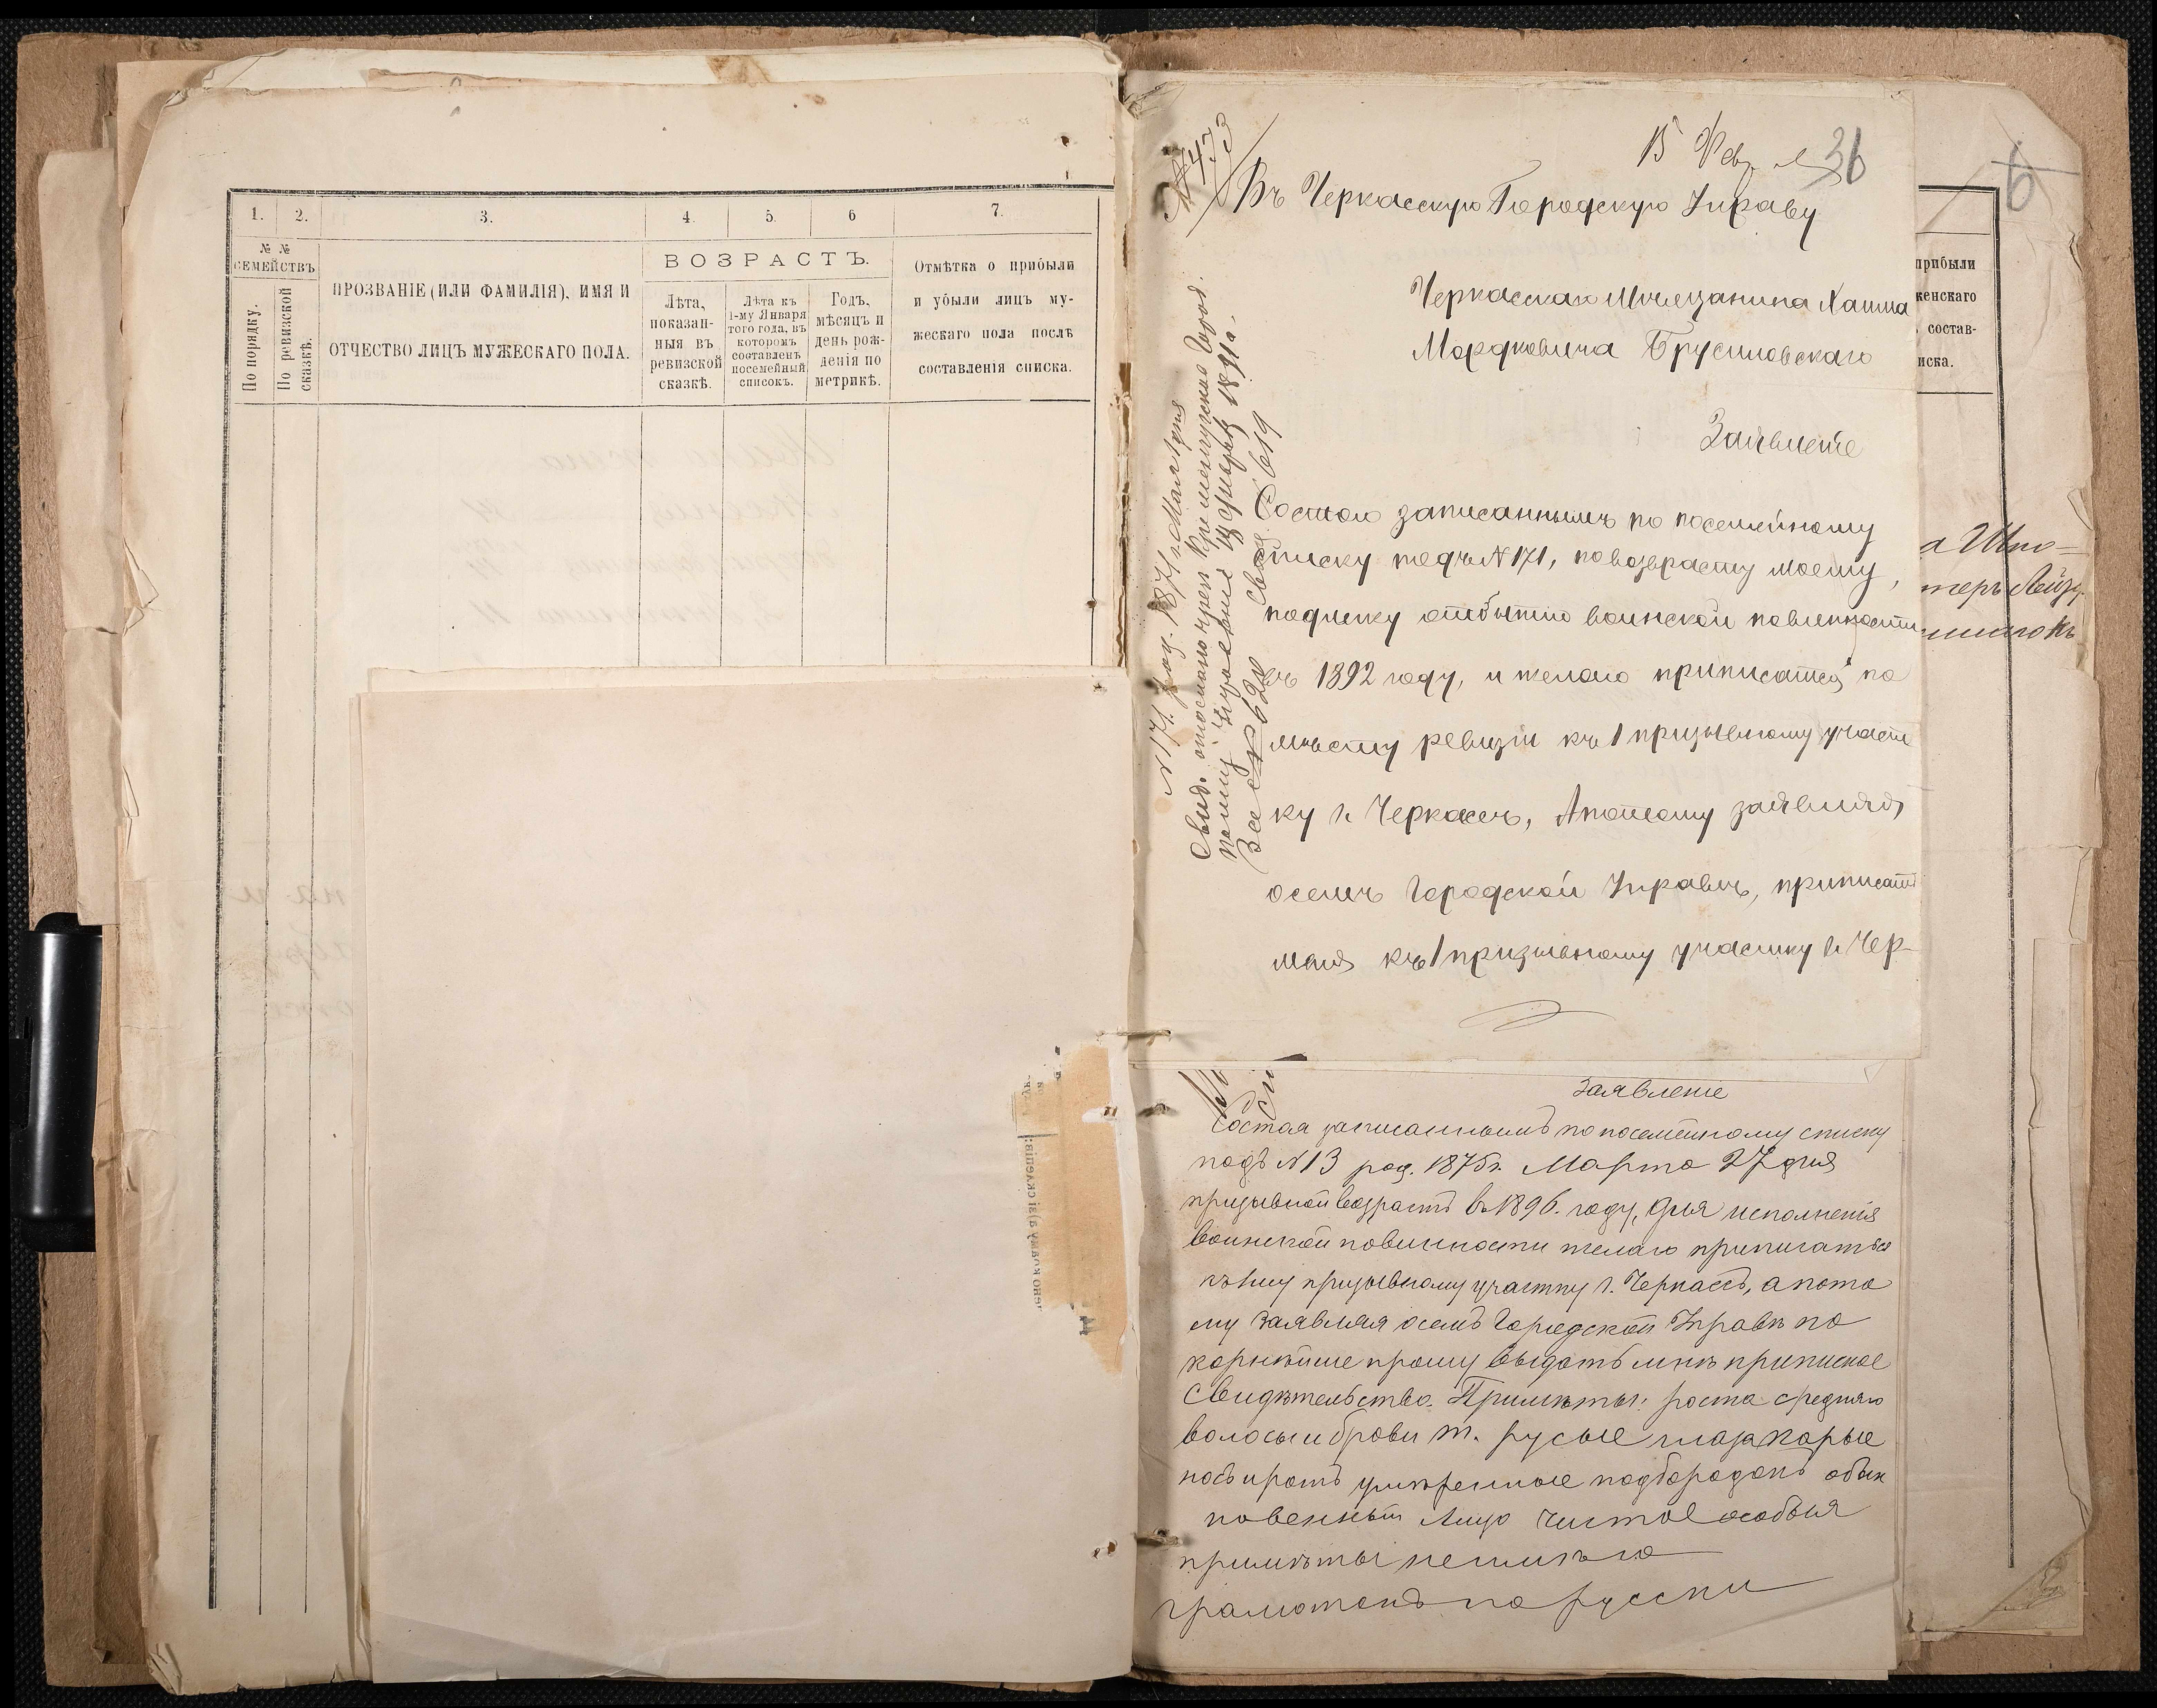 1. 2. 3. 4. 5. 6 7.
№ № СЕМЕЙСТВЪ
По порядку.
По ревизской сказкѣ.
ПРОЗВАНІЕ (ИЛИ ФАМИЛІЯ), ИМЯ И
ОТЧЕСТВО ЛИЦЪ МУЖЕСКАГО ПОЛА.
ВОЗРАСТЪ.
Лѣта,
показан-
ныя въ
ревизской
сказкѣ.
Лѣта къ
1-му Января
того года, въ
которомъ
составленъ
посемейный
списокъ.
Годъ,
мѣсяцъ и
день рож-
денія по
метрикѣ.
Отмѣтка о прибыли
и убыли лицъ му-
жескаго пола послѣ
составленія списка.
№ 473
15 Фев.
36
Въ Черкасскую Городскую Управу
Черкасскаго Мѣщанина Хаима
Мордковича Брусиловскаго
Заявленіе
Состою записаннымъ по посемейному
списку подъ № 171, по возврасту моему,
подлежу отбытію воинской повинности
въ 1892 году, и желаю приписатся по
мѣсту ревизіи къ 1 призывному участ
ку г. Черкассъ, А потому заявляя,
осемъ Городской Управѣ, приписать
меня къ 1 призывному участку г. Чер-
№ 171. род. 1871 г. Мая 1 дня
Свид. отослано чрез Кременчугскую Город.
Заявленіе
Состоя записаннымъ по посемейному списку
подъ № 13 род. 1875 г. Марта 27 дня
призывной возрастъ въ 1896. году, для исполненія
воинской повинности желаю приписаться
къ 1му призывному участку г. Черкассъ, а пото
му заявляя осемъ Городской Управѣ по
корнѣйше прошу выдать мнѣ приписное
Свидѣтельство. Примѣты: роста средняго
волосы и брови т. русые глаза карые
носъ и ротъ умѣренные подбородокъ обык
новенный лицо чистое особыя
примѣты не имѣю
грамотенъ по русски
6
прибыли
женскаго
состав-
иска.